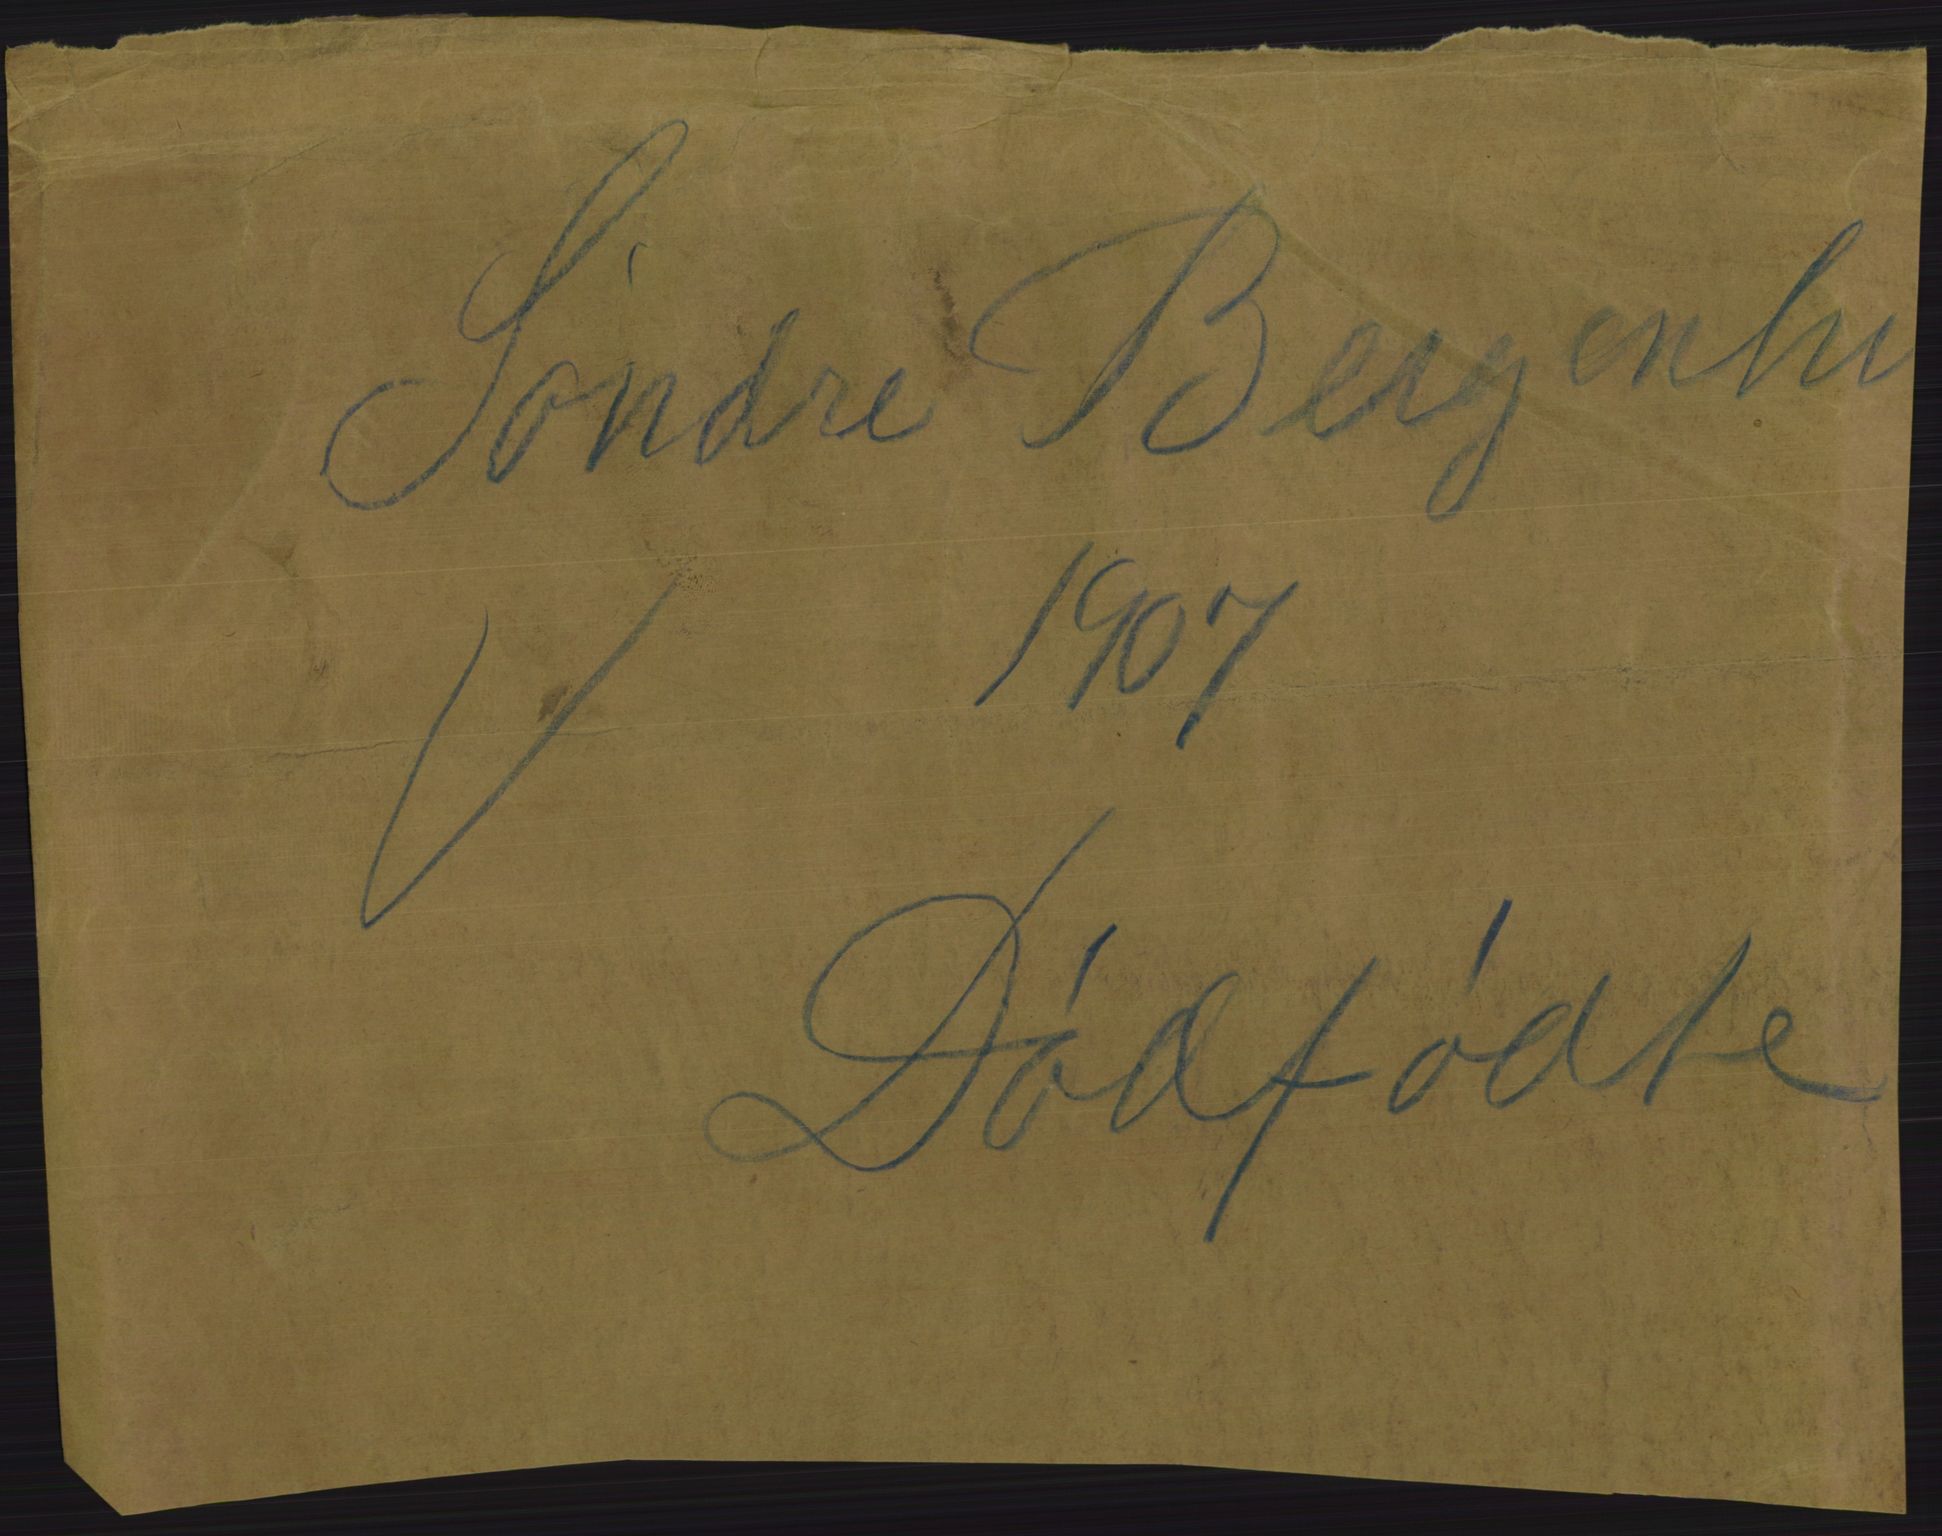 Söndre Bergenhu
1907
Dödfödte